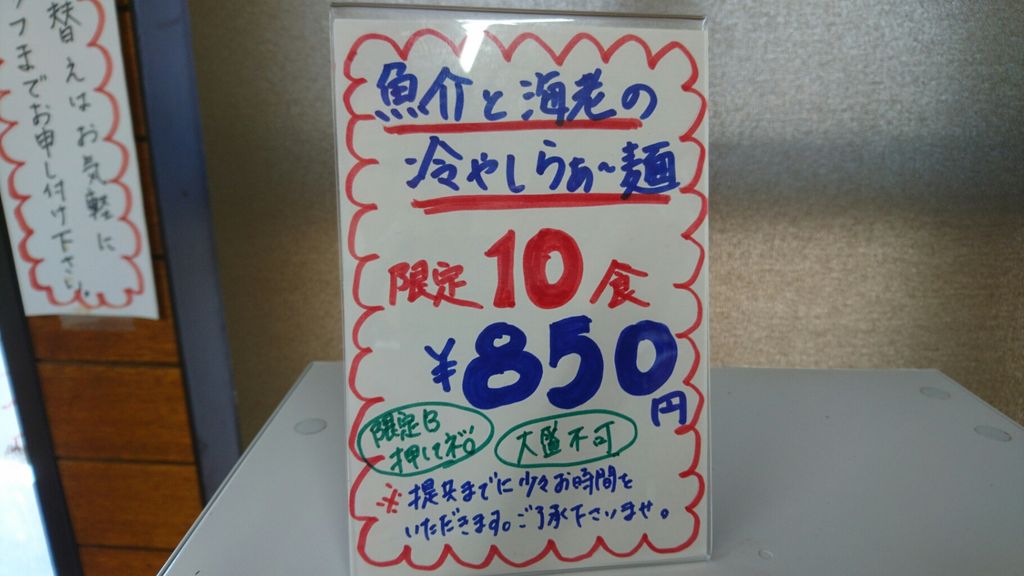 魚介と海老の
冷やしらぁ〜麺
限定10食
¥850円
限定B
押してネ!!
大盛不可
※提供までに少々お時間を
いただきます。ご了承下さいませ。
替えはお気軽に
フまでお申し付け下さい。